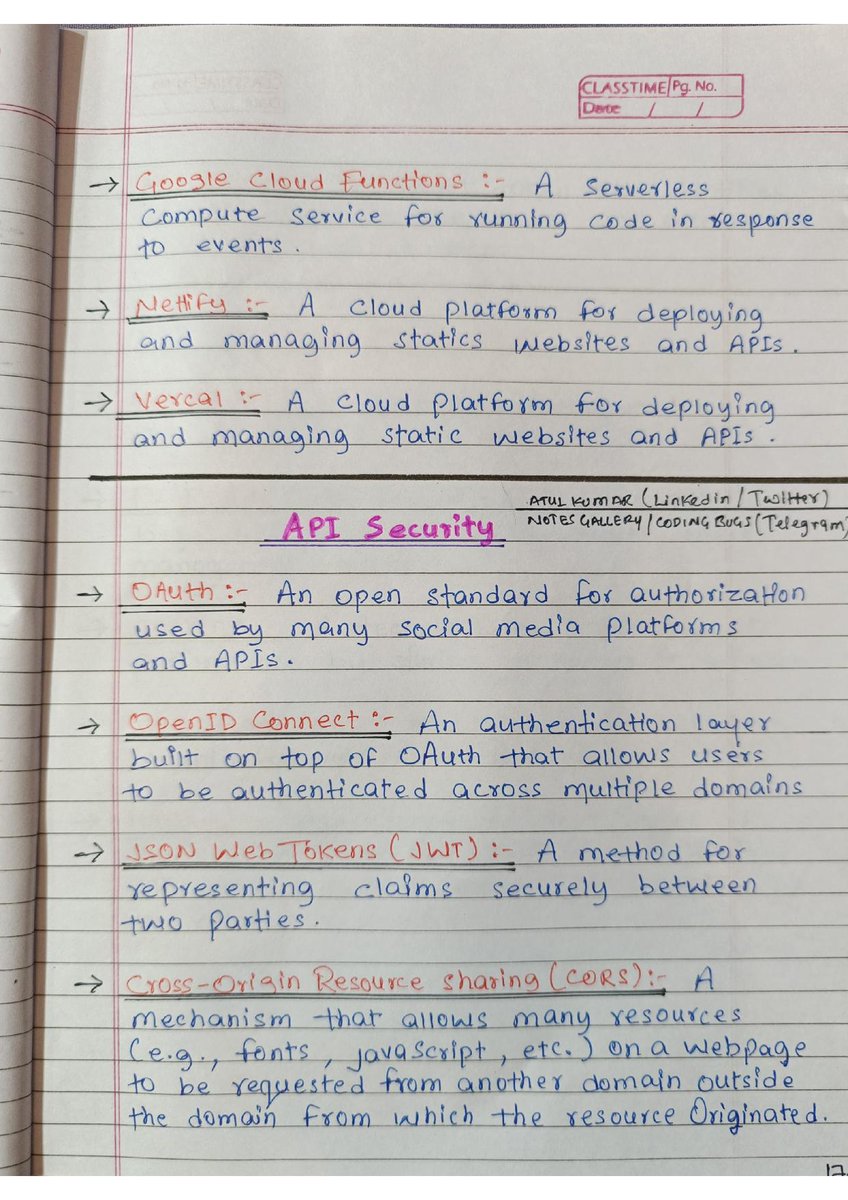 CLASSTIME Pg. No.
Date / /
→ Google Cloud Functions :- A Serverless
Compute Service for running code in response
to events.
→ Netlify :- A cloud platform for deploying
and managing statics websites and APIs.
→ Vercal :- A cloud platform for deploying
and managing static websites and APIs.
ATUL KUMAR (Linkedin / Twitter)
NOTES GALLERY / CODING BUGS (Telegram)
API Security
→ OAuth :- An open standard for authorization
used by many social media platforms
and APIs.
→ OpenID Connect :- An authentication layer
built on top of OAuth that allows users
to be authenticated across multiple domains
→ JSON Web Tokens (JWT) :- A method for
representing claims securely between
two parties.
→ Cross-Origin Resource Sharing (CORS) :- A
mechanism that allows many resources
(e.g., fonts, javascript, etc.) on a webpage
to be requested from another domain outside
the domain from which the resource Originated.